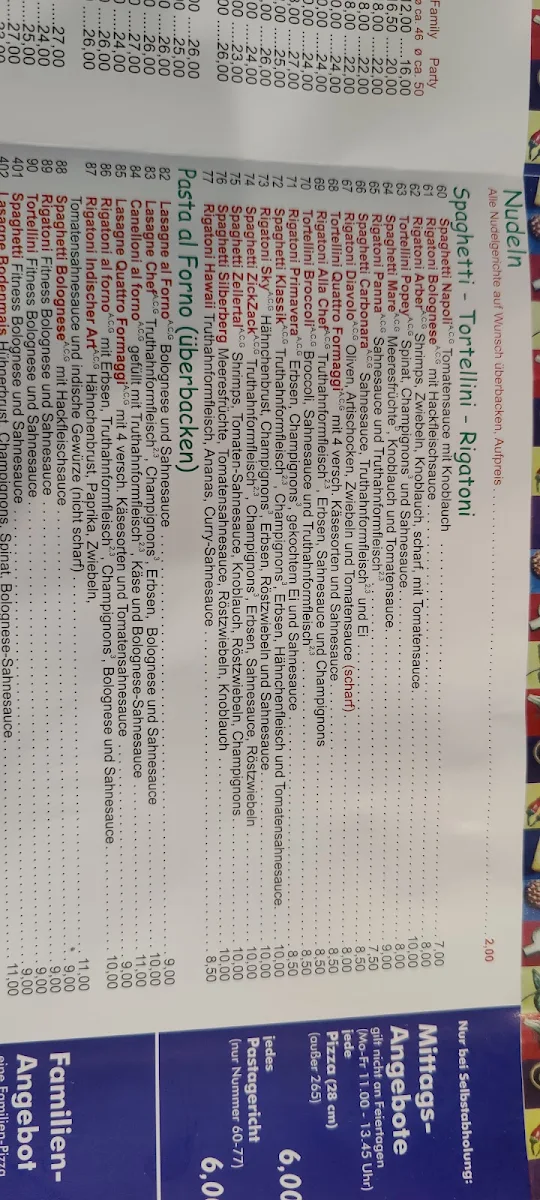 Family Party
ø ca. 46 ø ca. 50
12,00 ....16,00
16,50 ....20,00
Nudeln
Alle Nudelgerichte auf Wunsch überbacken, Aufpreis 2,00
Spaghetti - Tortellini - Rigatoni
60 Spaghetti Napoli A,C,G Tomatensauce mit Knoblauch 7,00
61 Rigatoni Bolognese A,C,G mit Hackfleischsauce 8,00
62 Rigatoni Arber A,C,G Shrimps, Zwiebeln, Knoblauch, scharf, mit Tomatensauce 10,00
63 Tortellini Popey A,C,G Spinat, Champignons³ und Sahnesauce 8,00
64 Spaghetti Mare A,C,G Meeresfrüchte, Knoblauch und Tomatensauce 9,00
65 Rigatoni Panna A,C,G Sahnesauce und Truthahnformfleisch 2,3 7,50
66 Spaghetti Carbonara A,C,G Sahnesauce, Truthahnformfleisch 2,3 und Ei 8,50
67 Rigatoni Diavolo A,C,G Oliven, Artischocken, Zwiebeln und Tomatensauce (scharf) 8,00
68 Tortellini Quattro Formaggi A,C,G mit 4 versch. Käsesorten und Sahnesauce 8,50
69 Rigatoni Alla Chef A,C,G Truthahnformfleisch 2,3, Erbsen, Sahnesauce und Champignons 8,50
70 Tortellini Broccoli A,C,G Broccoli, Sahnesauce und Truthahnformfleisch 2,3 8,50
71 Rigatoni Primavera A,C,G Erbsen, Champignons³, gekochtem Ei und Sahnesauce 8,50
72 Spaghetti Klassik A,C,G Truthahnformfleisch 2,3, Champignons³, Erbsen, Hähnchenfleisch und Tomatensahnesauce 10,00
73 Rigatoni Sky A,C,G Hähnchenbrust, Champignons³, Erbsen, Röstzwiebeln und Sahnesauce 10,00
74 Spaghetti ZickZack A,C,G Truthahnformfleisch 2,3, Champignons³, Erbsen, Sahnesauce, Röstzwiebeln 10,00
75 Spaghetti Zellertal A,C,G Shrimps, Tomaten-Sahnesauce, Knoblauch, Röstzwiebeln, Champignons 10,00
76 Spaghetti Silberberg Meeresfrüchte, Tomatensahnesauce, Röstzwiebeln, Knoblauch 10,00
77 Rigatoni Hawaii Truthahnformfleisch, Ananas, Curry-Sahnesauce 8,50
Pasta al Forno (überbacken)
82 Lasagne al Forno A,C,G Bolognese und Sahnesauce 9,00
83 Lasagne Chef A,C,G Truthahnformfleisch 2,3, Champignons³, Erbsen, Bolognese und Sahnesauce 10,00
84 Canelloni al forno A,C,G gefüllt mit Truthahnformfleisch 2,3, Käse und Bolognese-Sahnesauce 11,00
85 Lasagne Quattro Formaggi A,C,G mit 4 versch. Käsesorten und Tomatensahnesauce 9,00
86 Rigatoni al forno A,C,G mit Erbsen, Truthahnformfleisch 2,3, Champignons³, Bolognese und Sahnesauce 10,00
87 Rigatoni Indischer Art A,C,G Hähnchenbrust, Paprika, Zwiebeln,
Tomatensahnesauce und indische Gewürze (nicht scharf) 11,00
88 Spaghetti Bolognese A,C,G mit Hackfleischsauce 9,00
89 Rigatoni Fitness Bolognese und Sahnesauce 9,00
90 Tortellini Fitness Bolognese und Sahnesauce 9,00
401 Spaghetti Fitness Bolognese und Sahnesauce 9,00
402 Lasagne Bodenmais Hühnerbrust, Champignons, Spinat, Bolognese-Sahnesauce 11,00
Nur bei Selbstabholung:
Mittags-
Angebote
gilt nicht an Feiertagen
(Mo-Fr 11.00 - 13.45 Uhr)
jede
Pizza (28 cm)
(außer 265)
6,00
jedes
Pastagericht
(nur Nummer 60-77)
6,00
Familien-
Angebot
eine Familien-Pizza